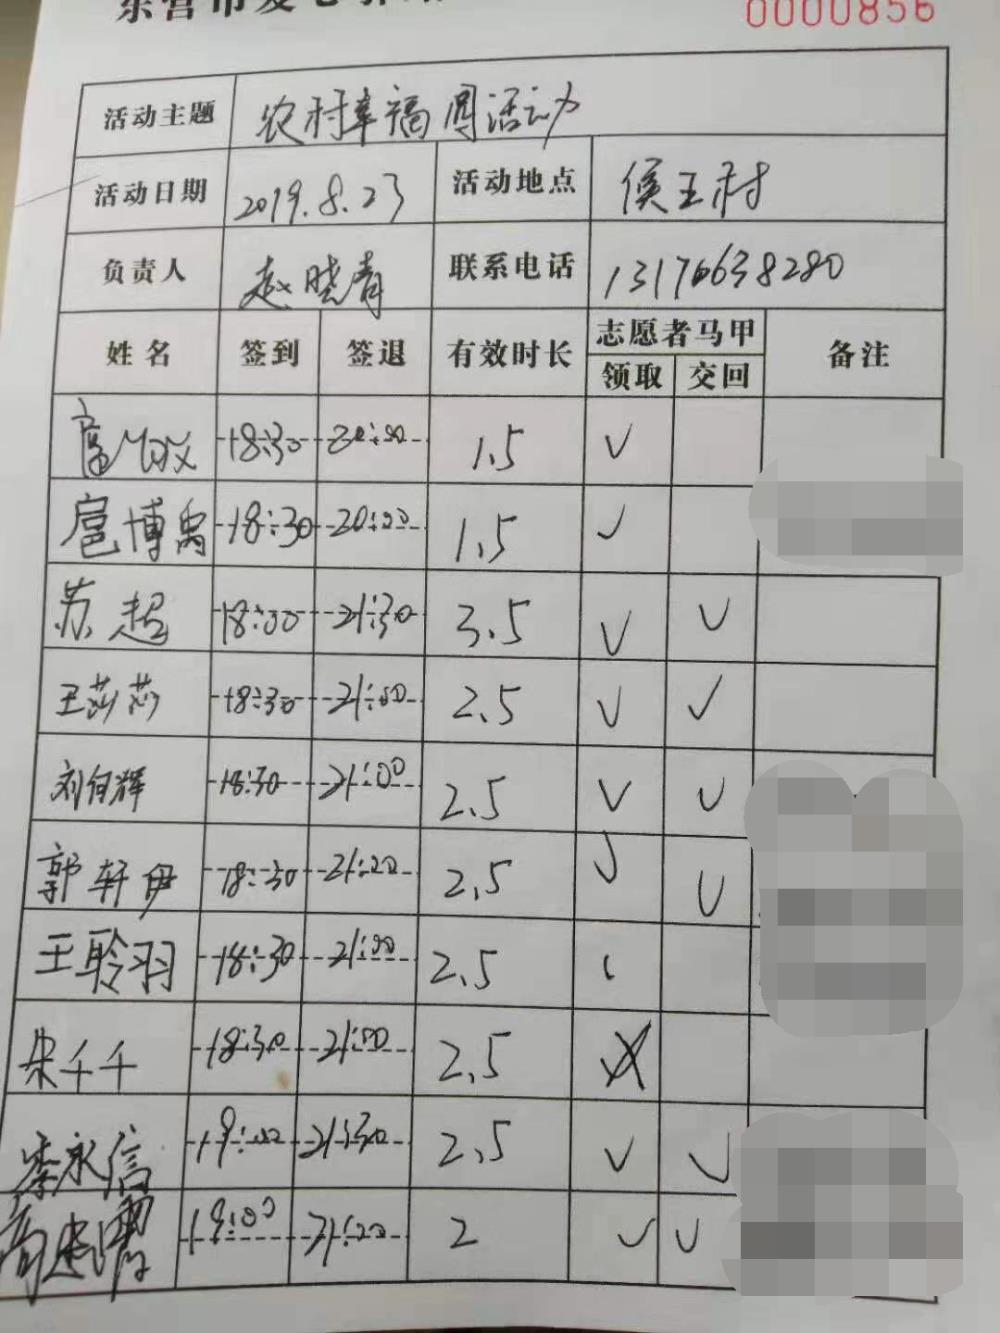 0000856
活动主题 农村幸福周活动
活动日期 2019.8.23 活动地点 侯王村
负责人 赵晓青 联系电话 13176638280
姓名 签到 签退 有效时长 志愿者马甲 备注
领取 交回
18:30 20:00 1.5 √
扈博禹 18:30 20:00 1.5 √
苏超 18:00 21:30 3.5 √ √
王莎莎 18:30 21:00 2.5 √ √
刘自辉 18:30 21:00 2.5 √ √
郭轩伊 18:30 21:00 2.5 √ √
王聆羽 18:30 21:00 2.5
朱千千 18:30 21:00 2.5
李永信 19:00 21:30 2.5 √ √
19:00 21:00 2 √ √